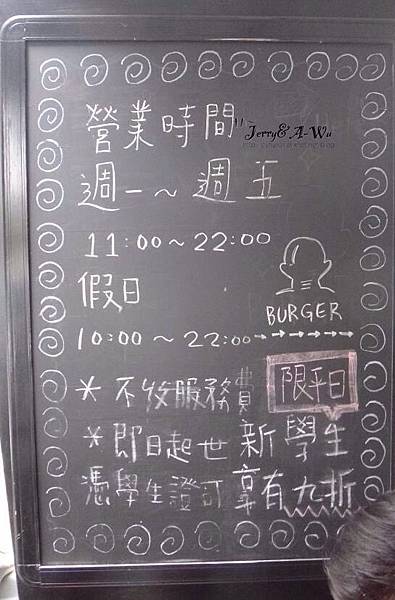 營業時間"
Jerry& A-Wu
週一～週五
11:00～22:00
假日
BURGER
10:00～22:00
＊不收服務費
限平日
＊即日起世新學生
憑學生證可享有九折